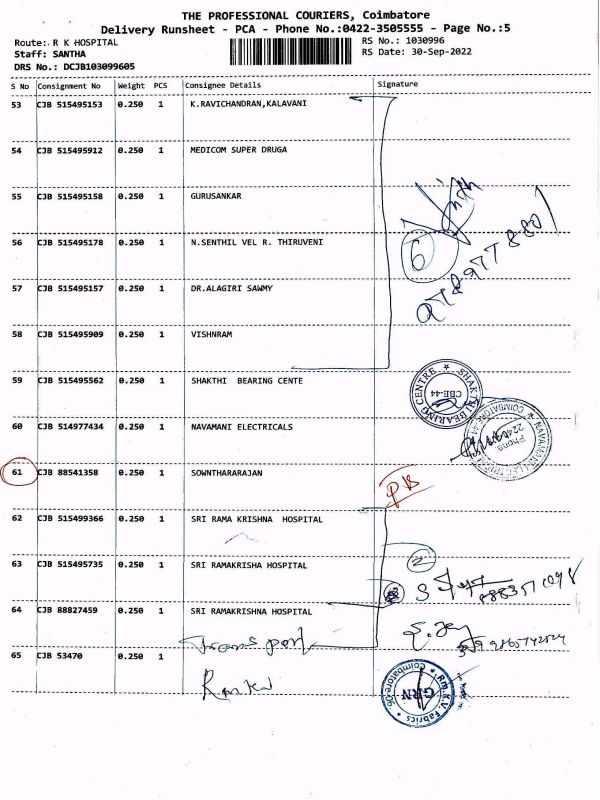 THE PROFESSIONAL COURIERS, Coimbatore
Delivery Runsheet - PCA - Phone No.:0422-3505555 - Page No.:5
Route: R K HOSPITAL
RS No.: 1030996
Staff: SANTHA
RS Date: 30-Sep-2022
DRS No.: DCJB103099605
S No Consignment No Weight PCS Consignee Details Signature
53 CJB 515495153 0.250 1 K.RAVICHANDRAN,KALAVANI
54 CJB 515495912 0.250 1 MEDICOM SUPER DRUGA
55 CJB 515495158 0.250 1 GURUSANKAR
56 CJB 515495178 0.250 1 N.SENTHIL VEL R. THIRUVENI
6
57 CJB 515495157 0.250 1 DR.ALAGIRI SAWMY
58 CJB 515495909 0.250 1 VISHNRAM
59 CJB 515495562 0.250 1 SHAKTHI BEARING CENTE
SHAKTHI BEARING CENTRE
CBE-44
60 CJB 514977434 0.250 1 NAVAMANI ELECTRICALS
61 CJB 88541358 0.250 1 SOWNTHARARAJAN
PB
62 CJB 515499366 0.250 1 SRI RAMA KRISHNA HOSPITAL
2
63 CJB 515495735 0.250 1 SRI RAMAKRISHA HOSPITAL
64 CJB 88827459 0.250 1 SRI RAMAKRISHNA HOSPITAL
Transport
65 CJB 53470 0.250 1
GRN